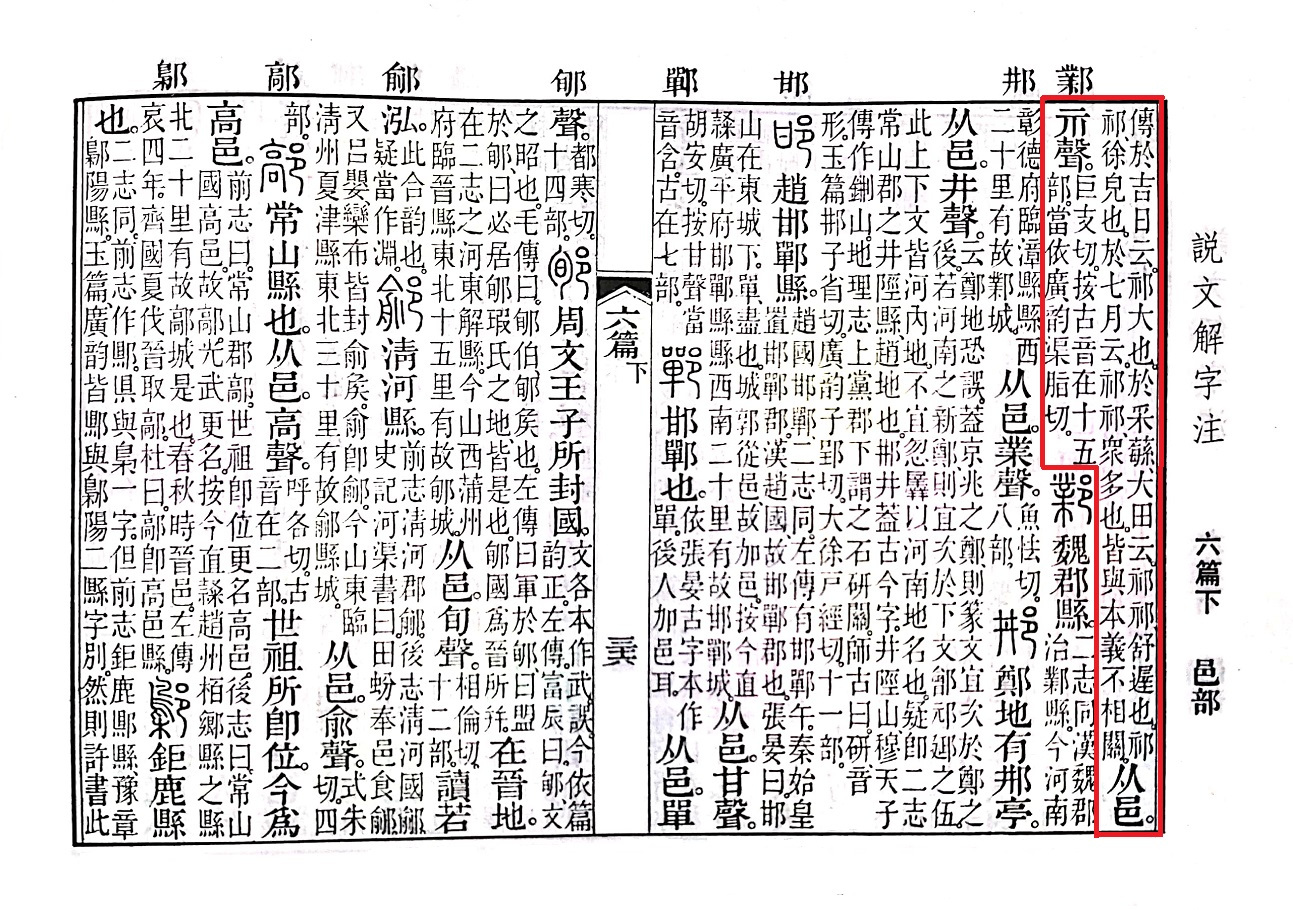 鄴 邢 邯 鄲 郇 鄃 鄗 鄡
説文解字注 六篇下 邑部
傳於吉日云。祁大也。於采蘩、大田云。祁祁舒遲也。祁祁徐皃也。於七月云。祁祁衆多也。皆與本義不相關。从邑。
示聲。巨支切。按古音在十五部。當依廣韵渠脂切。鄴魏郡縣。二志同。漢魏郡治鄴縣。今河南
彰德府臨漳縣縣西二十里有故鄴城。从邑業聲。魚怯切。八部。邢鄭地有邢亭。
从邑井聲。云鄭地恐誤。蓋京兆之鄭、則篆文宜次於鄭之後。若河南之新鄭、則宜次於下文郃祁郔之伍。
此上下文皆河內地。不宜忽羼以河南地名也。疑卽二志常山郡之井陘縣。趙地也。邢井蓋古今字。井陘山穆天子
傳作鉶山。地理志上黨郡下謂之石研關。師古曰。研音形。玉篇邢子省切。廣韵子郢切。大徐戶經切。十一部。
邯趙邯鄲縣。趙國邯鄲、二志同。左傳有邯鄲午。秦始皇置邯鄲郡。漢趙國故邯鄲郡也。張晏曰。邯
山在東城下。單、盡也。城郭從邑。故加邑。按今直隸廣平府邯鄲縣縣西南二十里有故邯鄲城。从邑甘聲。
胡安切。按甘聲當音含。古在七部。鄲邯鄲也。依張晏古字本作單。後人加邑耳。从邑單
六篇下 三六
聲。都寒切。十四部。郇周文王子所封國。文各本作武。誤。今依篇韵正。左傳。富辰曰。郇、文
之昭也。毛傳曰。郇伯、郇矦也。左傳曰。軍於郇。曰盟於郇。曰必居郇瑕氏之地。皆是也。郇國爲晉所幷。在晉地。
在二志之河東解縣。今山西蒲州府臨晉縣東北十五里有故郇城。从邑旬聲。相倫切。十二部。讀若
泓。此合韵也。疑當作淵。鄃清河縣。前志清河郡鄃。後志清河國鄃。史記河渠書曰。田蚡奉邑食鄃。
又呂嬰、欒布皆封俞矦。俞卽鄃。今山東臨清州夏津縣東北三十里有故鄃縣城。从邑俞聲。式朱切。四
部。鄗常山縣也。从邑。高聲。呼各切。古音在二部。世祖所卽位。今爲
高邑。前志曰。常山郡鄗。世祖卽位更名高邑。後志曰。常山國高邑。故鄗。光武更名。按今直隸趙州栢鄉縣之縣
北二十里有故鄗城是也。春秋時晉邑。左傳哀四年。齊國夏伐晉取鄗。杜曰。鄗卽高邑縣。鄡鉅鹿縣
也。二志同。前志作鄡。県與梟一字。但前志鉅鹿鄡縣、豫章鄡陽縣。玉篇、廣韵皆鄡與鄡陽二縣字別。然則許書此